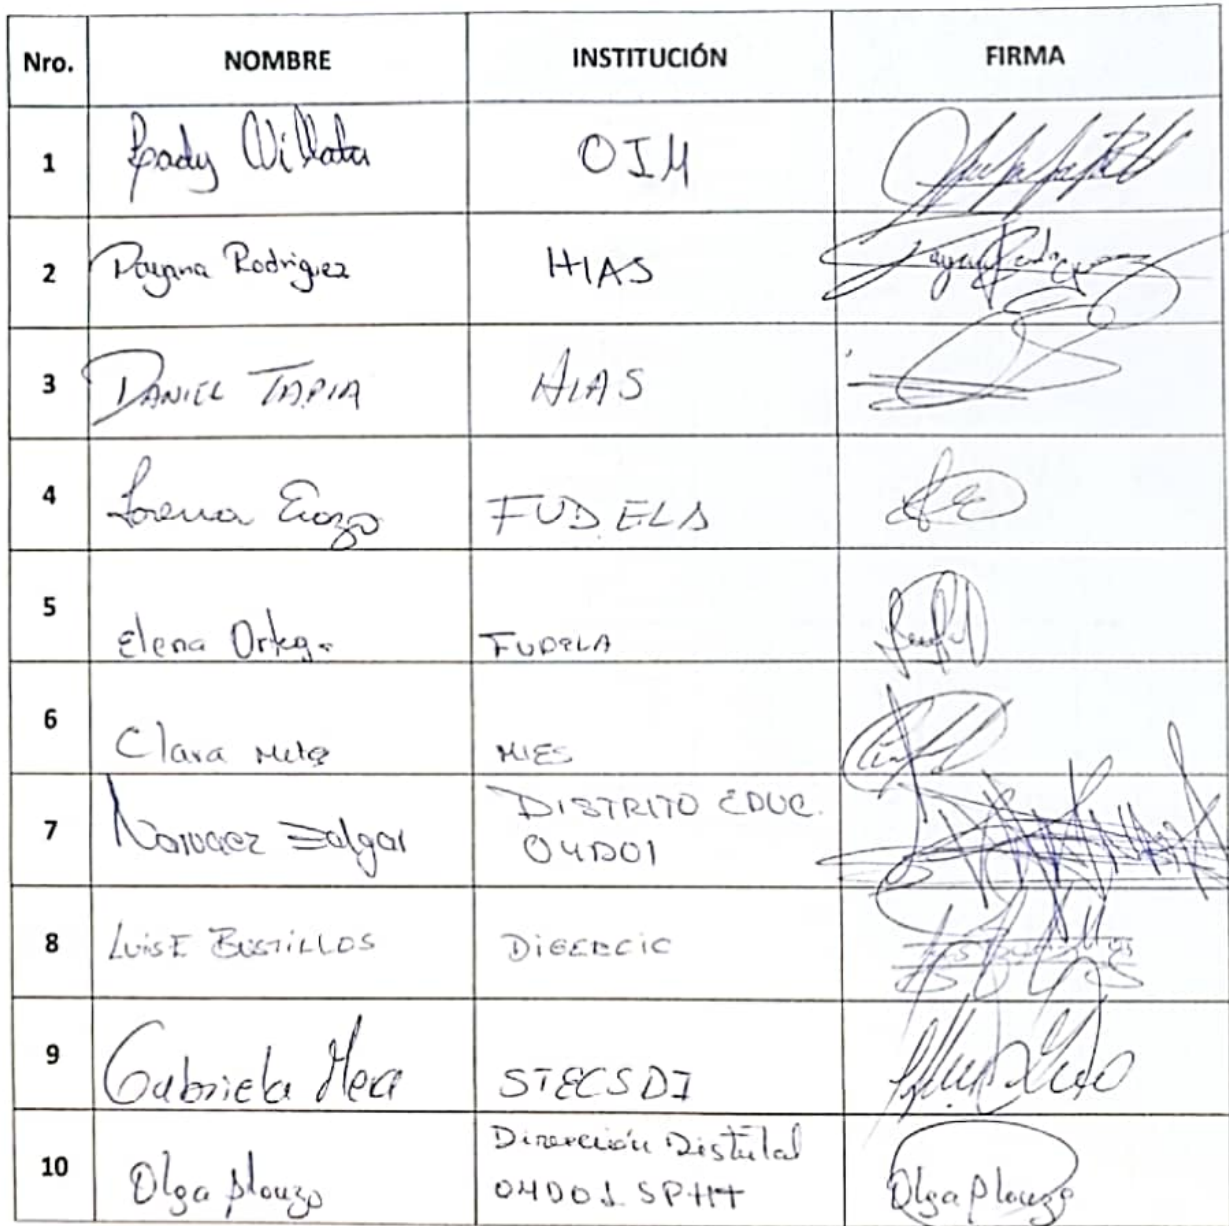 Nro. NOMBRE INSTITUCIÓN FIRMA
1 OIM
2 Dayana Rodriguez HIAS
3 DANIEL TAPIA HIAS
4 Lorena Erazo FUDELA
5 Elena Ortega FUDELA
6 Clara MIES
7 Narvaez Edgar DISTRITO EDUC.
04D01
8 LUIS E BUSTILLOS DIGERCIC
9 Gabriela Mera STECSDI
10 Olga Alonzo Dirección Distrital
04D01 SPHT Olga Alonzo